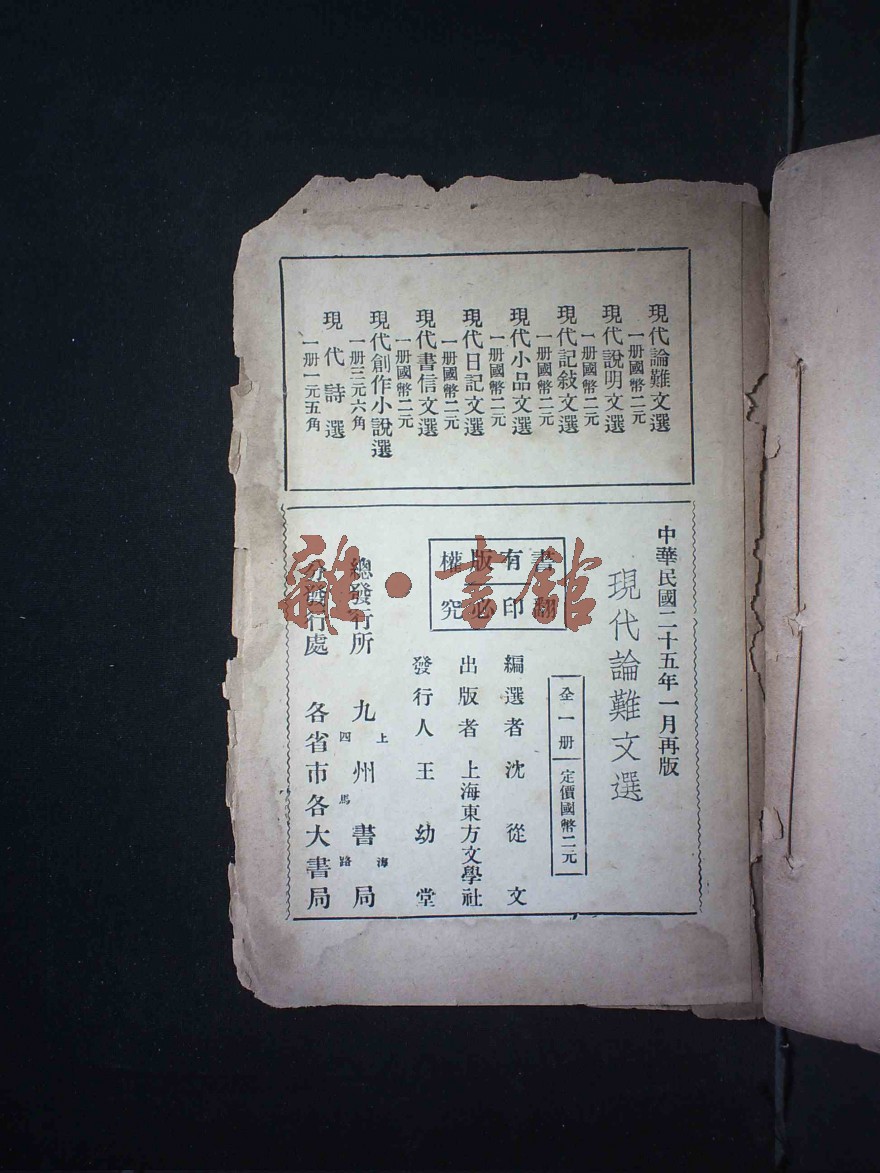 現代論難文選
一册國幣二元
現代說明文選
一册國幣二元
現代記敍文選
一册國幣二元
現代小品文選
一册國幣二元
現代日記文選
一册國幣二元
現代書信文選
一册國幣二元
現代創作小說選
一册三元六角
現代詩選
一册一元五角
中華民國二十五年一月再版
現代論難文選
全一册 定價國幣二元
書有版權
翻印必究
編選者 沈從文
出版者 上海東方文學社
發行人 王幼堂
總發行所 九州書局
上海四馬路
分發行處 各省市各大書局
雜·書館